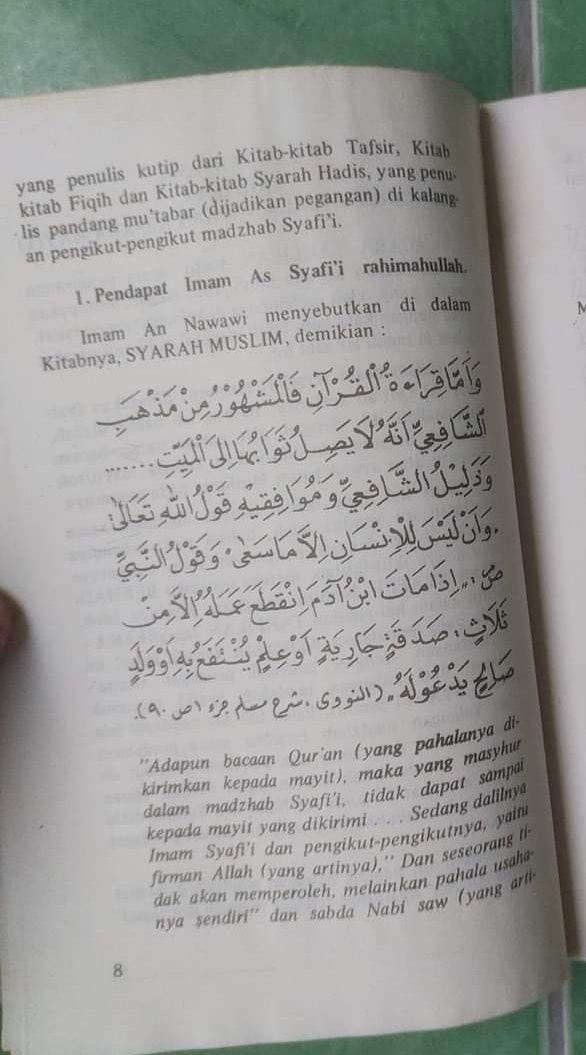 yang penulis kutip dari Kitab-kitab Tafsir, Kitab
kitab Fiqih dan Kitab-kitab Syarah Hadis, yang penu-
lis pandang mu'tabar (dijadikan pegangan) di kalang-
an pengikut-pengikut madzhab Syafi'i.
1. Pendapat Imam As Syafi'i rahimahullah.
Imam An Nawawi menyebutkan di dalam
Kitabnya, SYARAH MUSLIM, demikian :
وَأَمَّا قِرَاءَةُ الْقُرْآنِ فَالْمَشْهُوْرُ مِنْ مَذْهَبِ
الشَّافِعِيِّ أَنَّهُ لَا يَصِلُ ثَوَابُهَا إِلَى الْمَيِّتِ ......
وَدَلِيْلُ الشَّافِعِيِّ وَمُوَافِقِيْهِ قَوْلُ اللهِ تَعَالَى:
وَأَنْ لَيْسَ لِلْإِنْسَانِ إِلَّا مَا سَعَى، وَقَوْلُ النَّبِيِّ
ص: "إِذَا مَاتَ ابْنُ آدَمَ انْقَطَعَ عَمَلُهُ إِلَّا مِنْ
ثَلَاثٍ: صَدَقَةٍ جَارِيَةٍ أَوْ عِلْمٍ يُنْتَفَعُ بِهِ أَوْ وَلَدٍ
صَالِحٍ يَدْعُوْ لَهُ". (النووى، شرح مسلم جزء ١ ص ٩٠).
"Adapun bacaan Qur'an (yang pahalanya di-
kirimkan kepada mayit), maka yang masyhur
dalam madzhab Syafi'i, tidak dapat sampai
kepada mayit yang dikirimi . . . . Sedang dalilnya
Imam Syafi'i dan pengikut-pengikutnya, yaitu
firman Allah (yang artinya),'' Dan seseorang ti-
dak akan memperoleh, melainkan pahala usaha-
nya sendiri" dan sabda Nabi saw (yang arti-
8